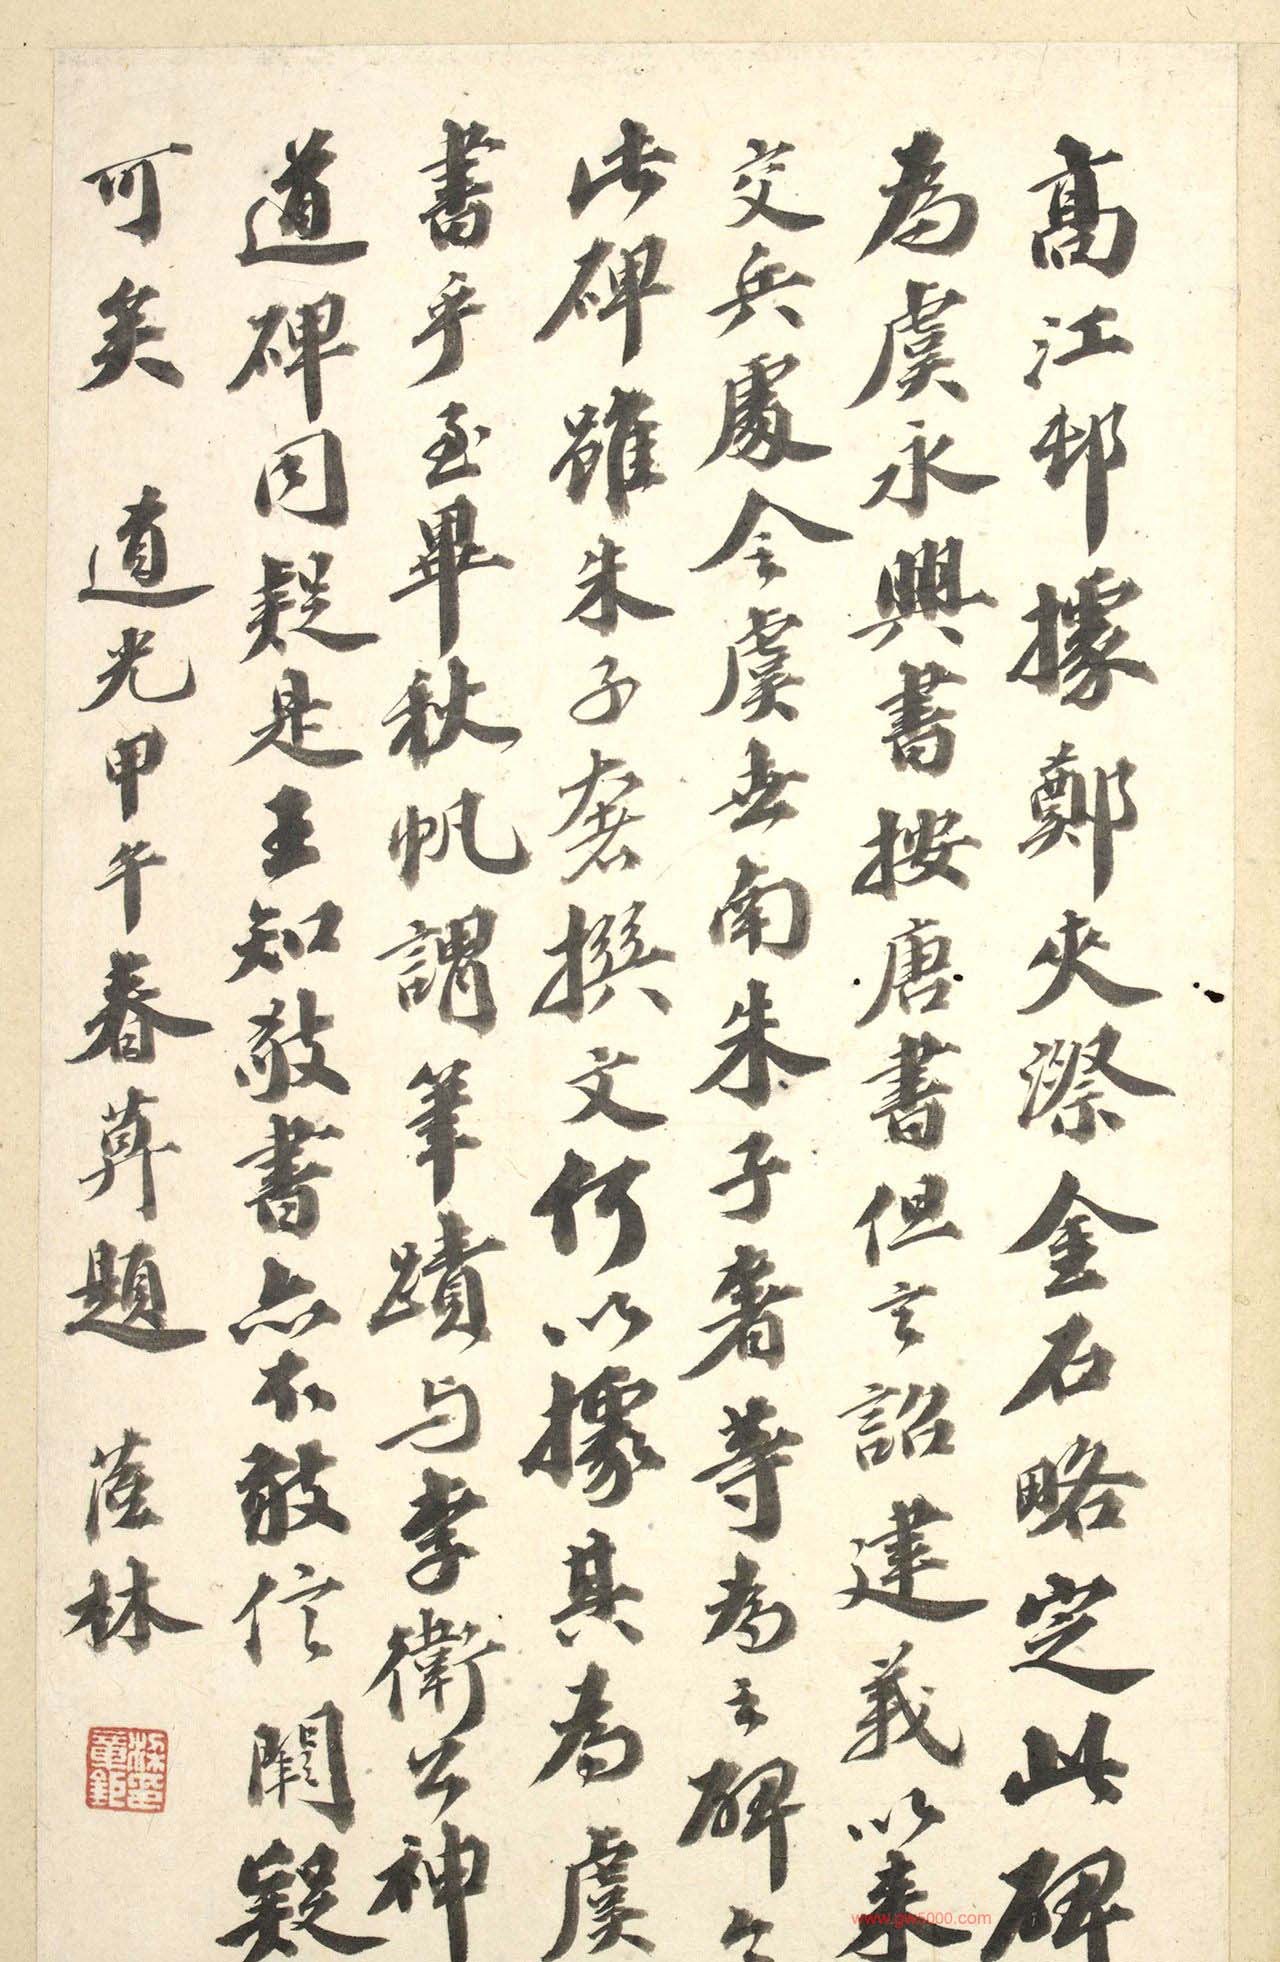 高江邨據鄭夾漈金石略定此碑
為虞永興書按唐書但言詔建義以來
交兵處令虞世南朱子奢等為之碑今
此碑雖朱子奢撰文何以據其為虞
書乎至畢秋帆謂筆蹟与李衛公神
道碑同疑是王知敬書亦不敢信闕疑
可矣 道光甲午春莫題 蔭林
www.gw5000.com